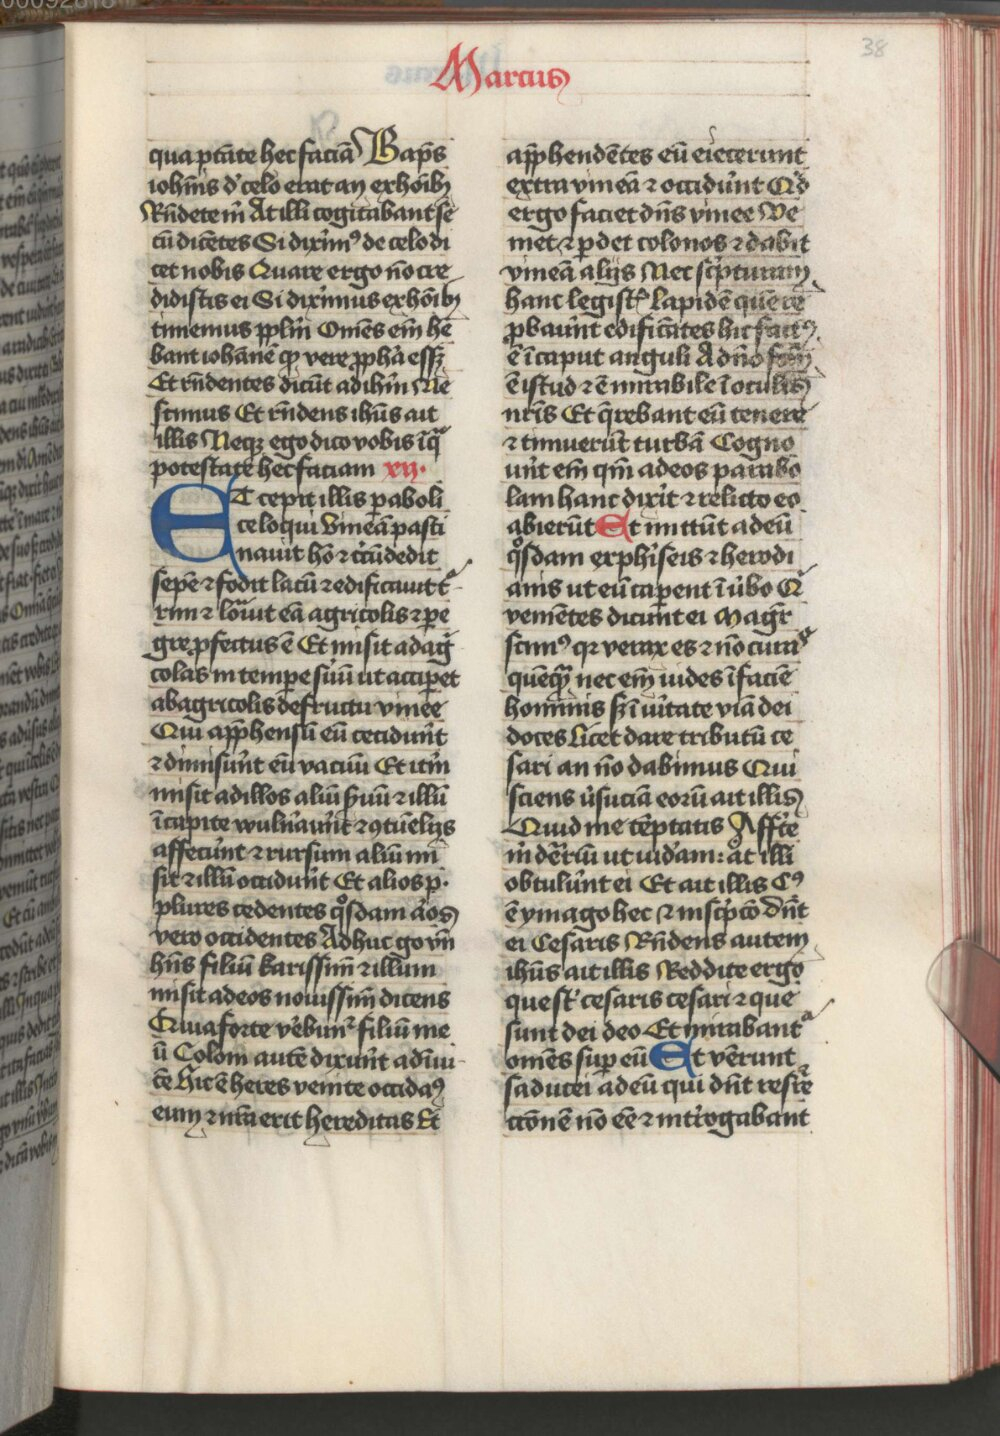 Marcus
38
qua ptāte hec faciā Bapᷤs
iohīnis d' celo erat an ex hoīby
Rn̄dete m̄ At illi cogitabant se
cū dicētes Si dixim⁹ de celo di
cet nobis Quare ergo nō cre
didistis ei Si dixīmus ex hoīby
timemus pplm̄ Om̄es em̄ he
bant iohānē qꝫ vere ꝓpha esſꝫ
Et rn̄dentes dicūt ad ihm̄ Ne
scimus Et rn̄dens ihūs ait
illis Neqꝫ ego dico vobis ī q̄
potestate hec faciam xij·
ET cepit illis paboli
ce loqui Vineā pasti
nauit hō ⁊ circūdedit
sepē ⁊ fodit lacū ⁊ edificauit t
rim ⁊ louit eā agricolis ⁊ pe
gre ꝓfectus ē Et misit ad ag
colas in tempe suū ut accipet
ab agricolis de fructu vinee
Qui apphensū eū ceciderūt
⁊ dimiserūt eū vacuū Et itm̄
misit ad illos aliū suū ⁊ illū
ī capite wulnaūt ⁊ ꝯtūelijs
affecūnt ⁊ rursum aliū mi
sit ⁊ illū occiderūt Et alios p·
plures cedentes qͦsdam aīos
vero occidentes Adhuc go vn̄
hn̄s filiū karissim̄ ⁊ illum
misit ad eos nouissim̄ dicens
Quia forte v̄ebūn͛ filiū me
ū Coloni autē dixūt ad īui
cē Hic ē heres venite occida⁹
eum ⁊ nr̄a erit hereditas Et
apphendētes eū eiecerunt
extra vineā ⁊ occidūnt Q̄d
ergo faciet dn̄s vinee Ve
niet ⁊ pdet colonos ⁊ dabit
vineā alijs Nec sc̄pturam
hanc legist͛ lapidē quē re
ꝓbaūnt edificātes hic fact⁹
ē ī caput anguli A dn̄o fcm̄
ē istud ⁊ ē mirabile ī oculis
nr̄is Et q̄rebant eū tenere
⁊ timuerūt turbā Cogno
ūnt em̄ qm̄ ad eos parabo
lam hanc dixit ⁊ relicto eo
abierūt Et mittūnt ad eū
qͦsdam ex phiseis ⁊ herodi
anis ut eū capent ī ūbo Q
venientes dicunt ei Magr̄
scim⁹ qꝛ verax es ⁊ nō curas
quēq̄ꝫ nec em̄ vides ī faciē
hominis sꝫ ī ūitate viā dei
doces Licet dare tributū ce
sari an nō dabimus Qui
sciens ūsuciam eorū ait illis
Quid me tēptatis Affr̄te
m̄ dēriū ut vidam: at illi
obtulūnt ei Et ait illis C⁹
ē ymago hec ⁊ inscpcō Dn̄t
ei Cesaris Rn̄dens autem
ihūs ait illis Reddite ergo
que st͛ cesaris cesari ⁊ que
sunt dei deo Et mirabant͛
om̄es sup eū Et vēerunt
saducei ad eū qui dn̄t resr̄e
ctionē nō eē ⁊ introgabant